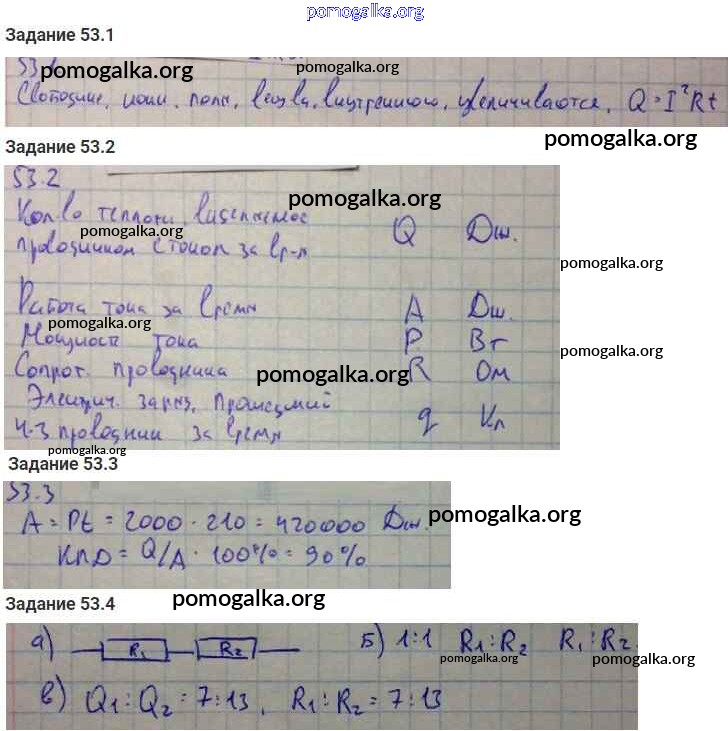 pomogalka.org
Задание 53.1
53.1
pomogalka.org pomogalka.org
Свободные, ионы, поля, внутреннюю, увеличиваются, Q = I²Rt
pomogalka.org
Задание 53.2
53.2
pomogalka.org
Кол-во теплоты, выделяемое
pomogalka.org
проводником с током за вр-я Q Дж.
pomogalka.org
Работа тока за время A Дж.
pomogalka.org
Мощность тока P Вт
pomogalka.org
Сопрот. проводника R Ом
pomogalka.org
Электрич. заряд, прошедший
ч-з проводник за время q Кл
pomogalka.org
Задание 53.3
53.3
A = Pt = 2000 · 210 = 420000 Дж.
pomogalka.org
КПД = Q/A · 100% = 90%
Задание 53.4
pomogalka.org
а) R1 R2 Б) 1:1 R1:R2 R1:R2
pomogalka.org pomogalka.org
в) Q1:Q2 = 7:13, R1:R2 = 7:13